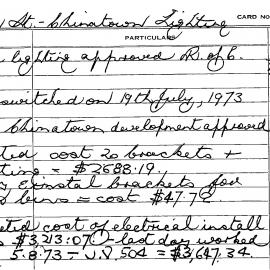 St. - Chinatown Lighting
CARD NO
PARTICULARS
lighting approved R. of C.
switched on 19th July, 1973
Chinatown development approved
cost 20 brackets +
= $2688.19.
install brackets for
= cost $47.72
cost of electrical install
$3,213.07 - last day worked
5.8.73 - J.V. 504 = $3,647.34